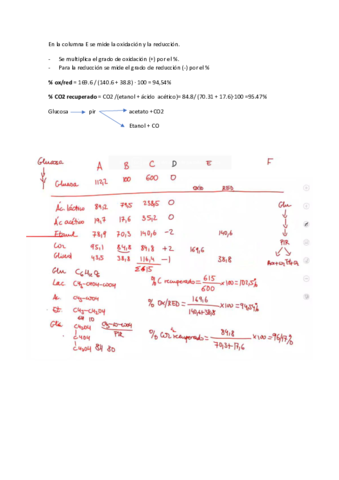 En la columna E se mide la oxidación y la reducción.
- Se multiplica el grado de oxidación (+) por el %.
- Para la reducción se mide el grado de reducción (-) por el %
% ox/red = 169.6 / (140.6 + 38.8) · 100 = 94,54%
% CO2 recuperado = CO2 /(etanol + ácido acético)= 84.8/ (70.31 + 17.6)·100 =95.47%
Glucosa pir acetato +CO2
Etanol + CO
Glucosa A B C D E F
Glucosa 112,2 100 600 0
oxio RED
Ác láctico 89,2 79,5 238,5 0 Glu
Ác acético 19,7 17,6 35,2 0
Etanol 78,9 70,3 140,6 -2 140,6
CO2 95,1 84,8 84,8 +2 169,6 PIR
Glicerol 43,5 38,8 116,4 -1 38,8
Σ 615
Glu C6H12O6
Lac CH3-CHOH-COOH
% C recuperado = 615/600 x100 = 102,5%
Ac CH3-COOH
% OX/RED = 169,6/140,6+38,8 x100 = 94,54%
Et CH3-CH2OH
CH2OH
CHOH
CH2OH
PIR
% CO2 recuperado = 84,8/70,3+17,6 x100 = 96,47%